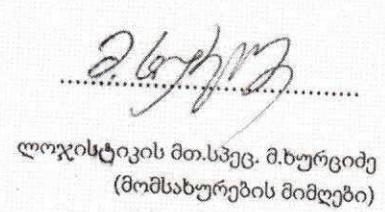 ლოჯისტიკის მთ.სპეც. მ.ხურციძე
(მომსახურების მიმღები)